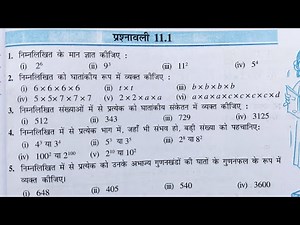 प्रश्नावली 11.1
1. निम्नलिखित के मान ज्ञात कीजिए :
(i) 2⁶ (ii) 9³ (iii) 11² (iv) 5⁴
2. निम्नलिखित को घातांकीय रूप में व्यक्त कीजिए :
(i) 6 × 6 × 6 × 6 (ii) t × t (iii) b × b × b × b
(iv) 5 × 5 × 7 × 7 × 7 (v) 2 × 2 × a × a (vi) a × a × a × c × c × c × c × d
3. निम्नलिखित संख्याओं में से प्रत्येक को घातांकीय संकेतन में व्यक्त कीजिए :
(i) 512 (ii) 343 (iii) 729 (iv) 3125
4. निम्नलिखित में से प्रत्येक भाग में, जहाँ भी संभव हो, बड़ी संख्या को पहचानिए:
(i) 4³ या 3⁴ (ii) 5³ या 3⁵ (iii) 2⁸ या 8²
(iv) 100² या 2¹⁰⁰ (v) 2¹⁰ या 10²
5. निम्नलिखित में से प्रत्येक को उनके अभाज्य गुणनखंडों की घातों के गुणनफल के रूप में
व्यक्त कीजिए:
(i) 648 (ii) 405 (iii) 540 (iv) 3600